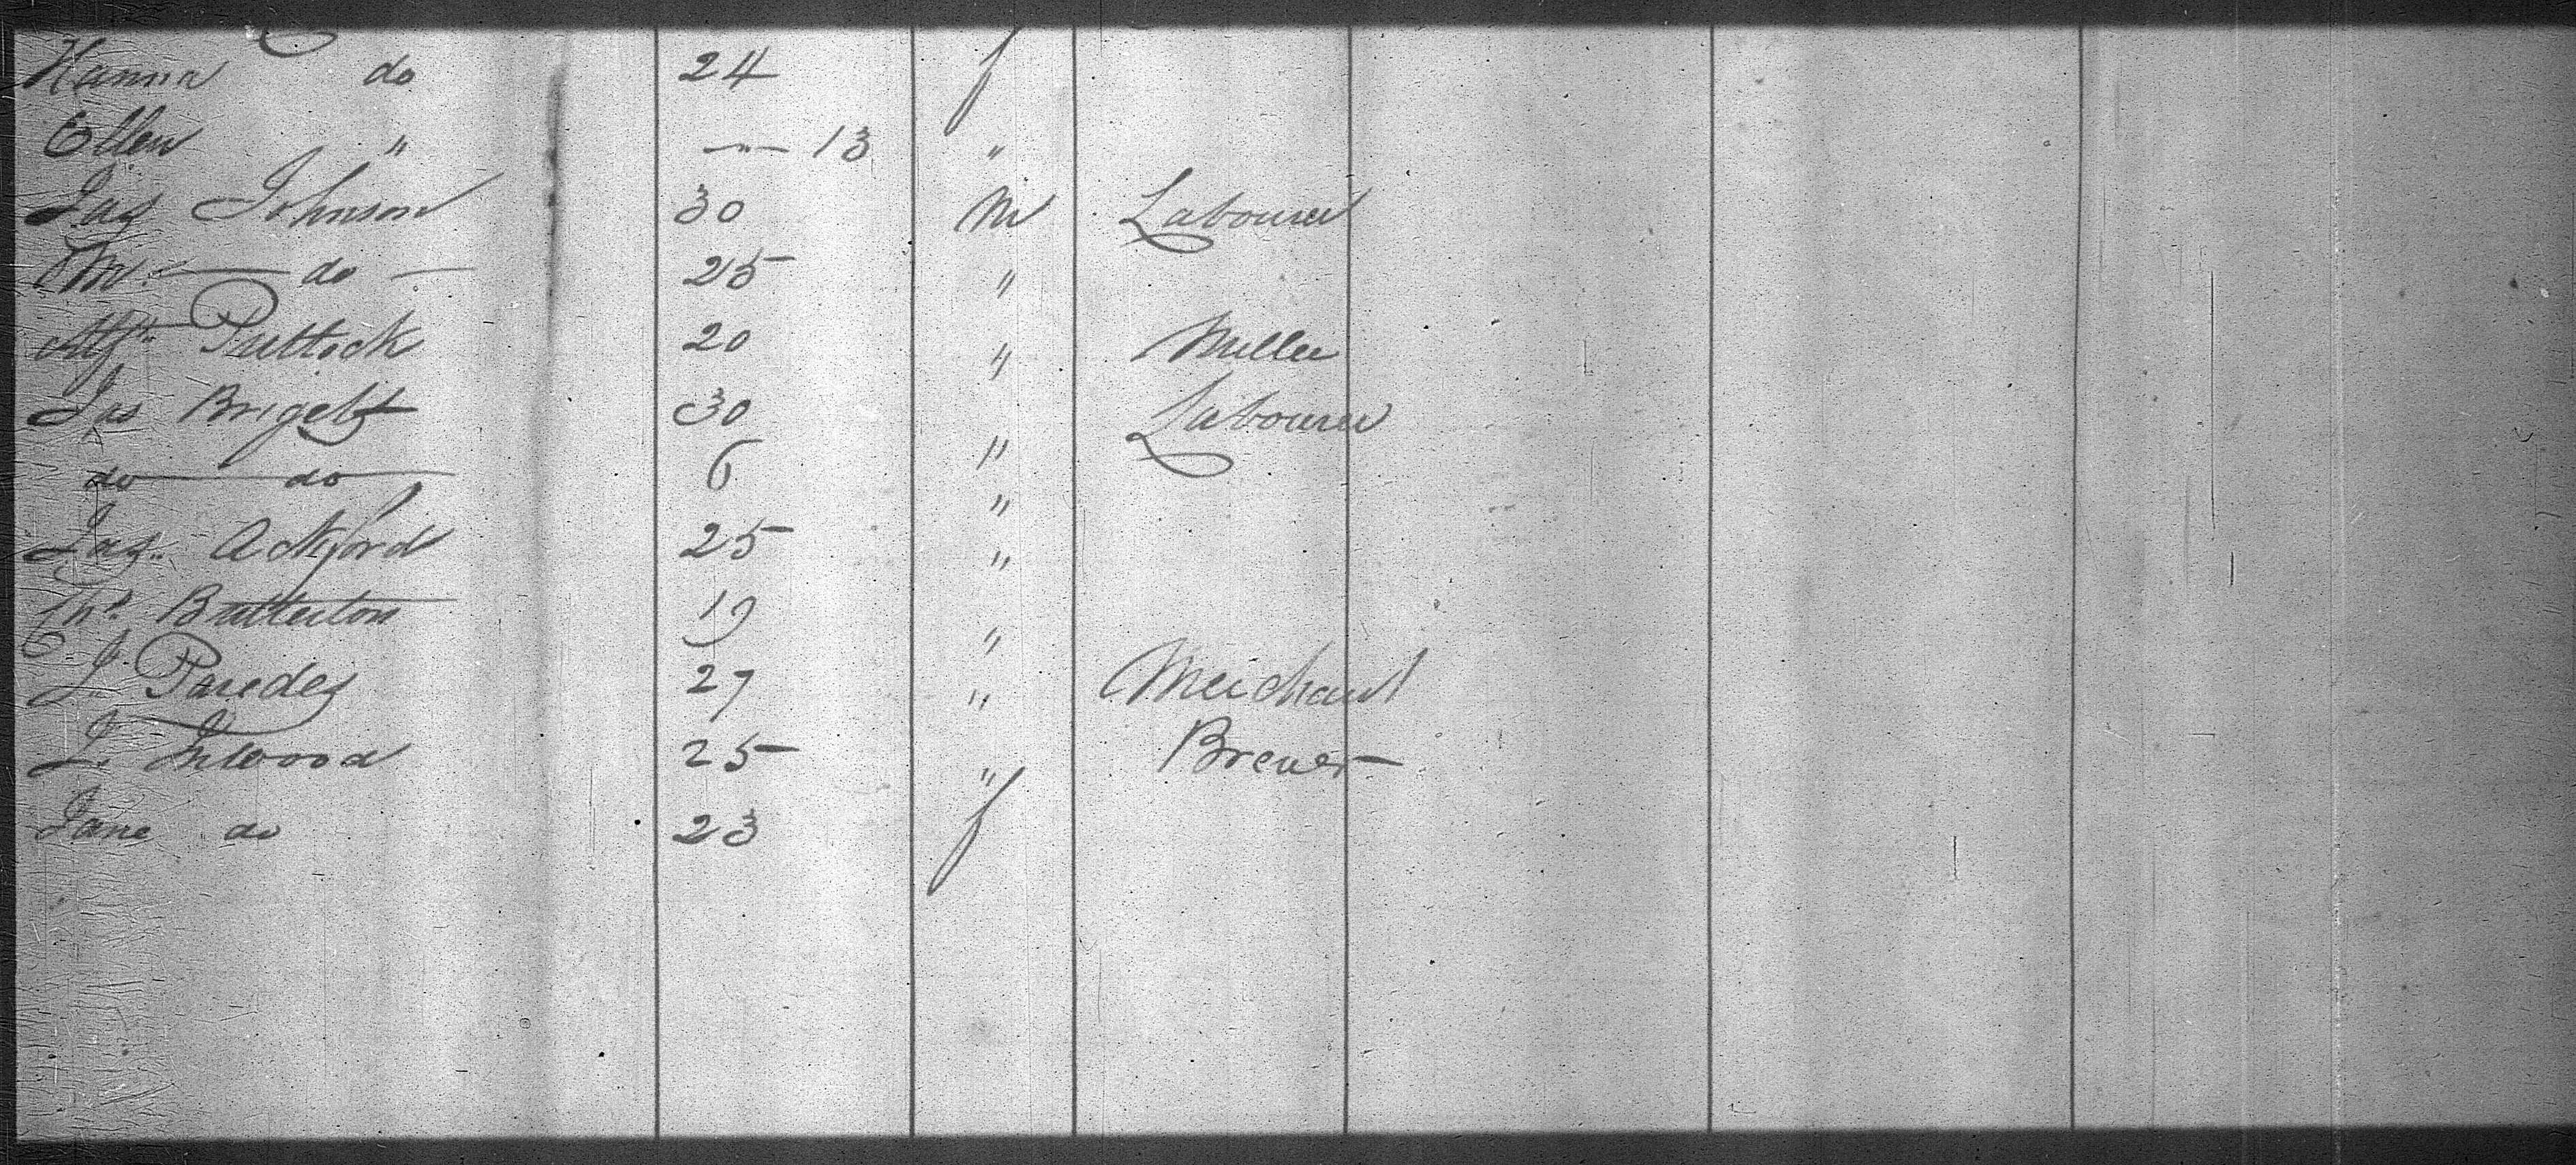 Hanna do 24 f
Ellen " — 13 "
Jas Johnson 30 M Labourer
Wm. — do — 25 "
Puttock 20 " Miller
Jas Bright 30 " Labourer
do do 6 "
Jas. Ackford 25 "
Ths. Bratterton 19 "
J. Paredes 27 " Merchant
J. Inwood 25 " Brewer
Jane do 23 f